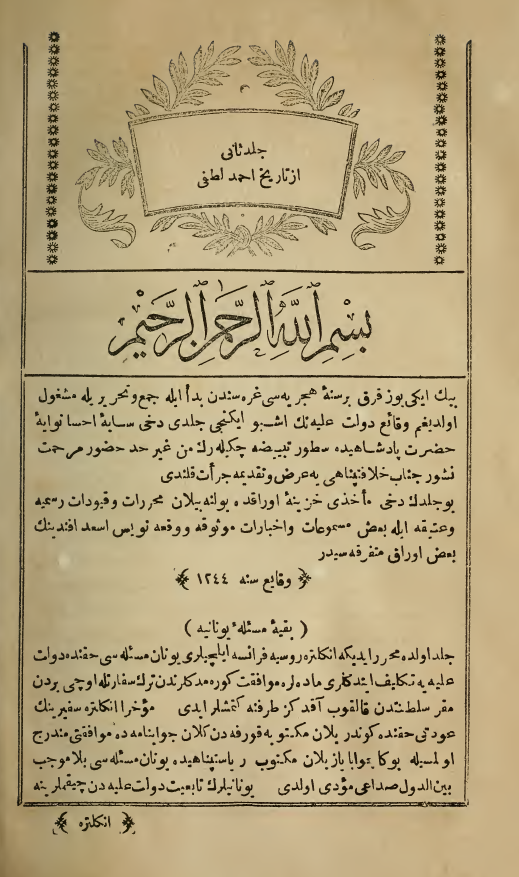 جلد ثانی
از تاریخ احمد لطفی
بسم الله الرحمن الرحیم
بیك ایکی یوز قرق بر سنۀ هجریه سی غره سندن بدأ ایله جمع و تحریریله مشغول
اولدیغم وقائع دولت علیه نك اشبو ایکنجی جلدی دخی سایۀ احسانوایۀ
حضرت پادشاهیده سطور تبییضه چکیله رك من غیر حد حضور مرحمت
نشور جناب خلافتپناهی یه عرض و تقدیمه جرأت قلندی
بو جلدك دخی مأخذی خزینۀ اوراقده بولنه بیلان محررات و قیودات رسمیه
و عتیقه ایله بعض مسموعات و اخبارات موثوقه و وقعه نویس اسعد افندینك
بعض اوراق متفرقه سیدر
﴿ وقایع سنه ١٢٤٤ ﴾
( بقیۀ مسئلۀ یونانیه )
جلد اولده محرر ایدیکه انکلتره روسیه فرانسه ایلچیلری یونان مسئله سی حقنده دولت
علیه یه تکلیف ایتدکلری ماده لره موافقت کوره مدکلرندن ترك سفارتله اوچی بردن
مقر سلطنتدن قالقوب آقدکز طرفنه کتمشلر ایدی مؤخرا انکلتره سفیرینك
عودتی حقنده کوندریلان مکتوبه قورفه دن کلان جوابنامه ده موافقتی مندرج
اولمسیله بوکا جوابا یازیلان مکتوب ریاستپناهیده یونان مسئله سی بلا موجب
بین الدول صداعی مؤدی اولدی یونانیلرك تابعیت دولت علیه دن چیقملرینه
﴿ انکلتره ﴾